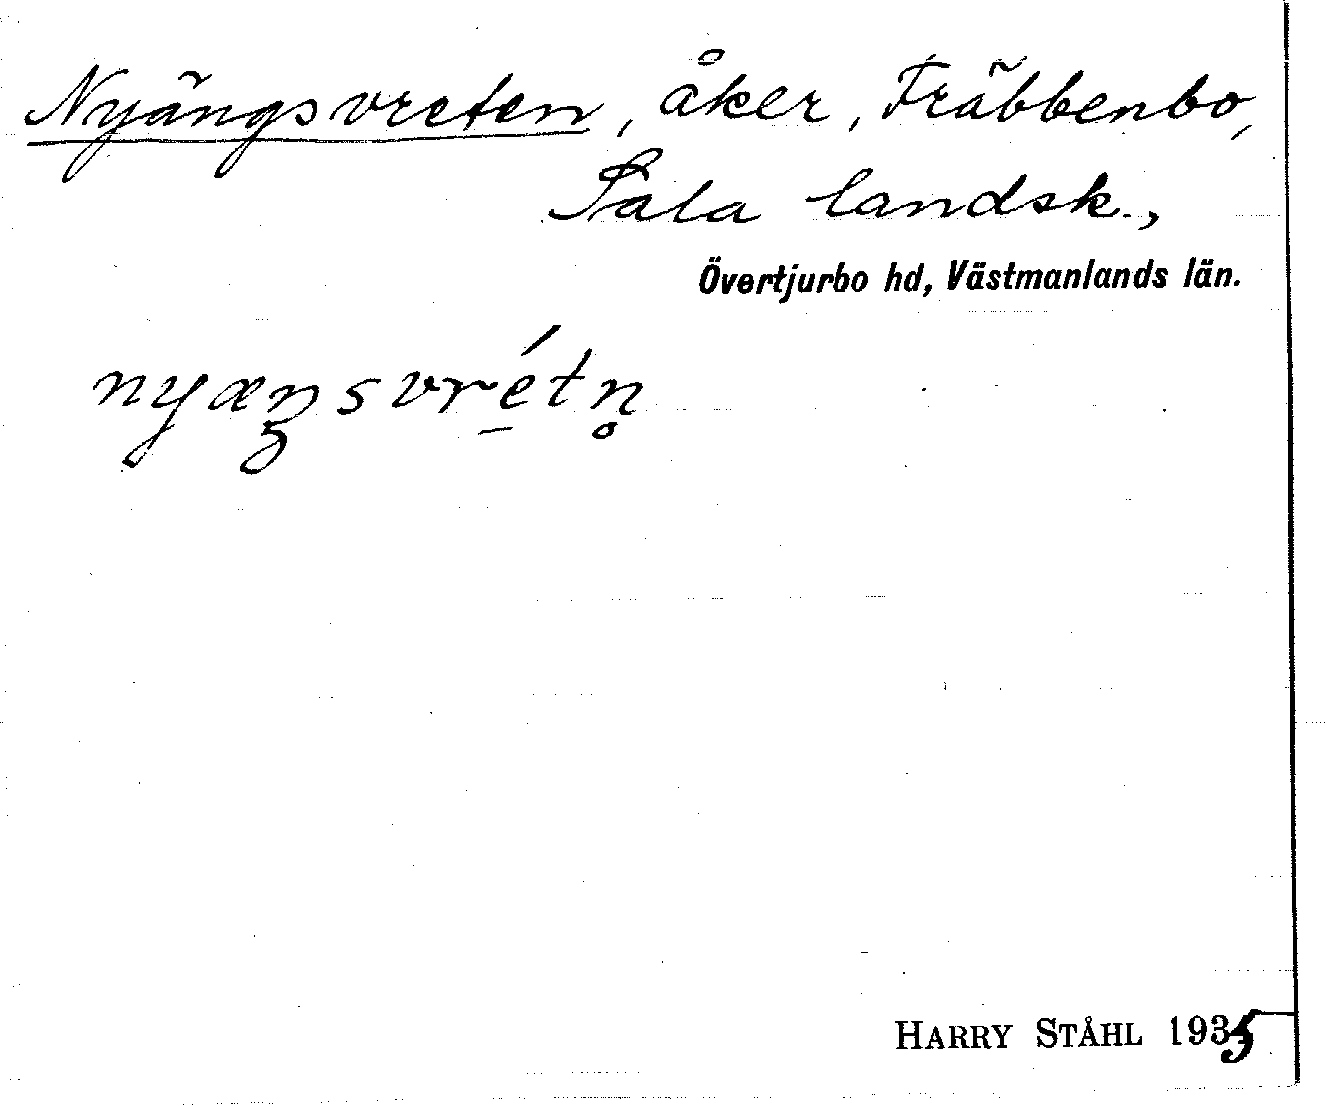 Nyängsvreten, åker, Fräbbenbo,
Sala landsk.,
Övertjurbo hd, Västmanlands län.
nyæŋsvrétn̥
HARRY STÅHL 1935